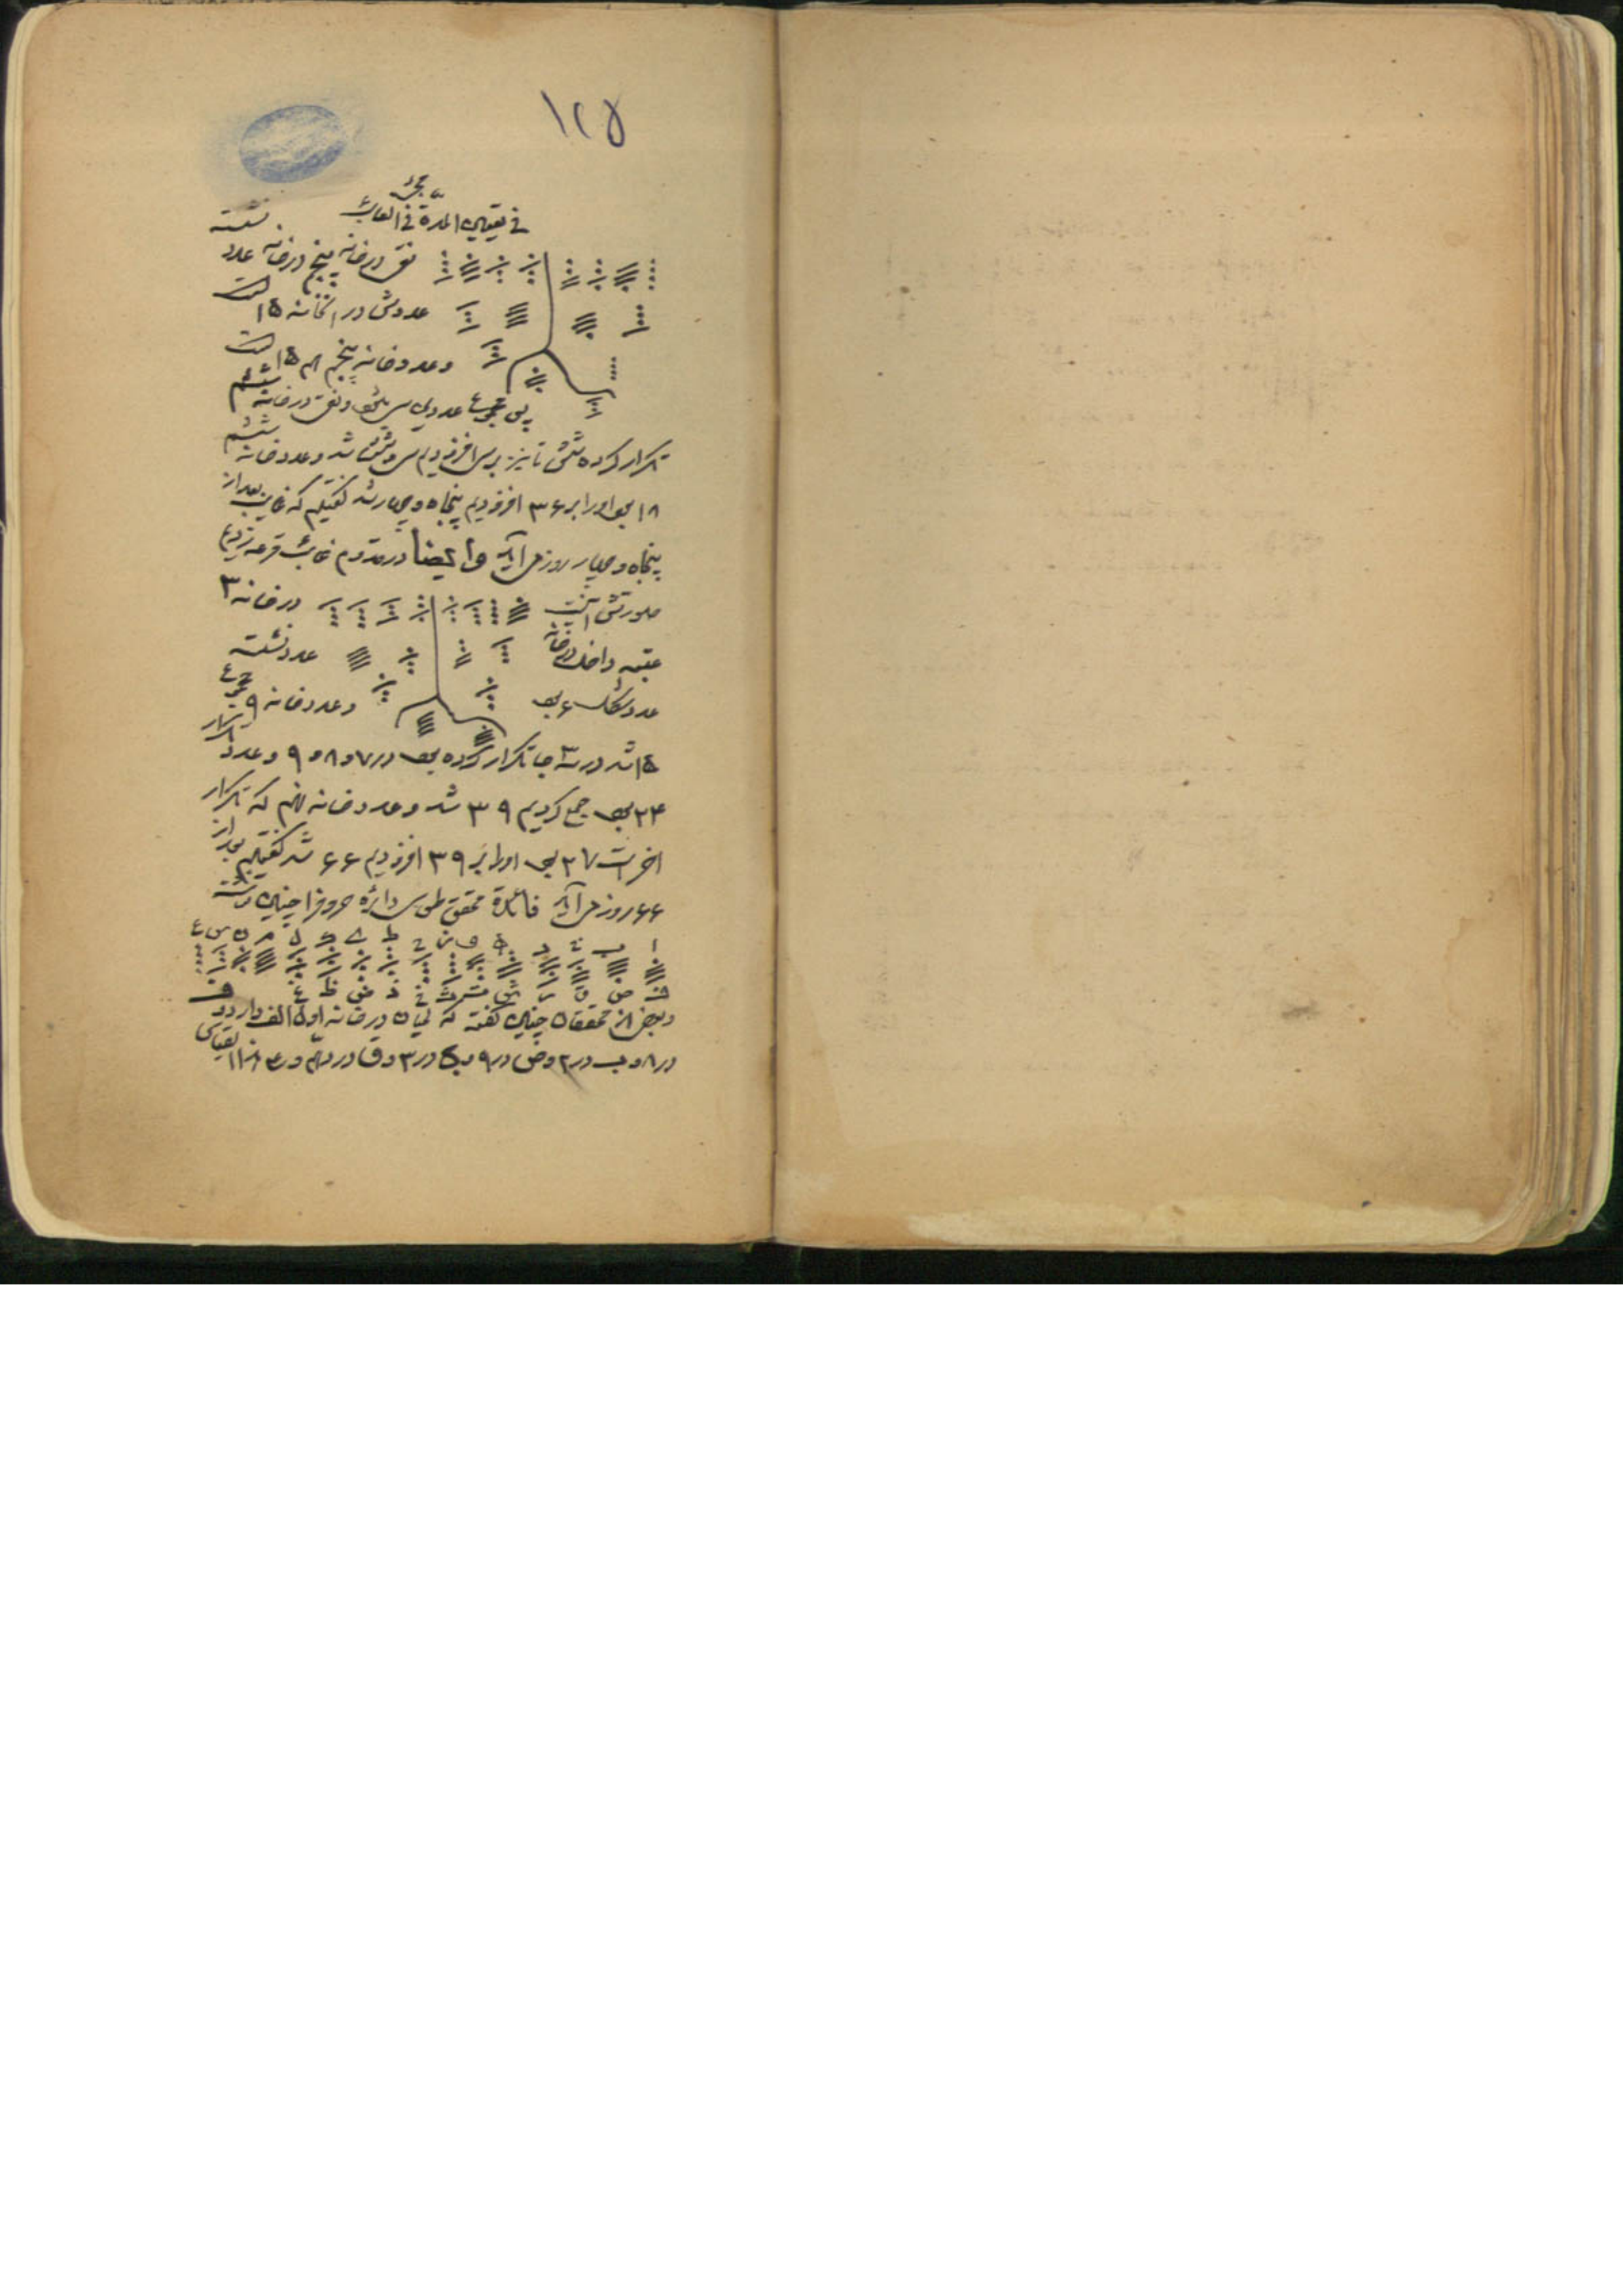 ۱۲۵
فی تعیین المدة فی الغائب
نقی در خانه پنج در خانه عدد نشسته
عددش در آنخانه ۱۵ است
و عدد خانه پنجم هم ۱۵ است
پس مجموع عددین سی شد و نقی در خانه ششم
تکرار کرده شش تا نیز بر سی افزودیم سی و شش شد و عدد خانه ششم
۱۸ بود او را بر ۳۶ افزودیم پنجاه و چهار شد گفتیم که غایب بعد از
پنجاه و چهار روز می آید وایضا در قدوم غائب قرعه زدیم
صورتش اینست در خانه ۳
عتبه داخل در خانه عدد نشسته
عدد شکل ۶ بود و عدد خانه ۹ مجموع
۱۵ شد در سه جا تکرار کرده بود در ۷ و ۸ و ۹ و عدد تکرار
۲۴ بود جمع کردیم ۳۹ شد و عدد خانه نهم که تکرار
اخر است ۲۷ بود او را بر ۳۹ افزودیم ۶۶ شد گفتیم بعد از
۶۶ روز می آید فائدة محقق طوسی دائره حروف را چنین نوشته
ا ب ت د ه و ز ح ط ی ک ل م ن س ع
ف ص ق ر ش ت ث خ ذ ض ظ غ
و بعض از محققان چنین گفته که لحیان در خانه اول الف دارد و
در ۸ و ب در ۲ و ض در ۹ و ج در ۳ و ق در دهم و